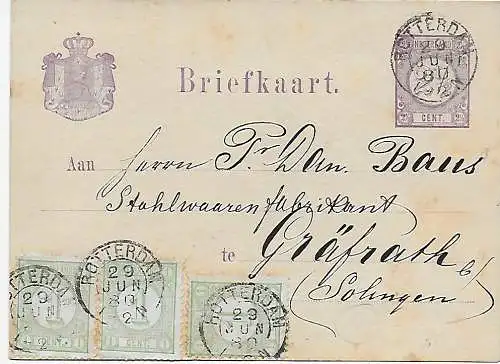 ROTTERDAM
29
JUN
80
2½ CENT. 2½
Briefkaart.
Aan Herrn Fr. Dan. Baus
Stahlwaarenfabrikant
te Gräfrath b/
Solingen
ROTTERDAM
29
JUN
ROTTERDAM
29
JUN
80
1 CENT 1
ROTTERDAM
29
JUN
80